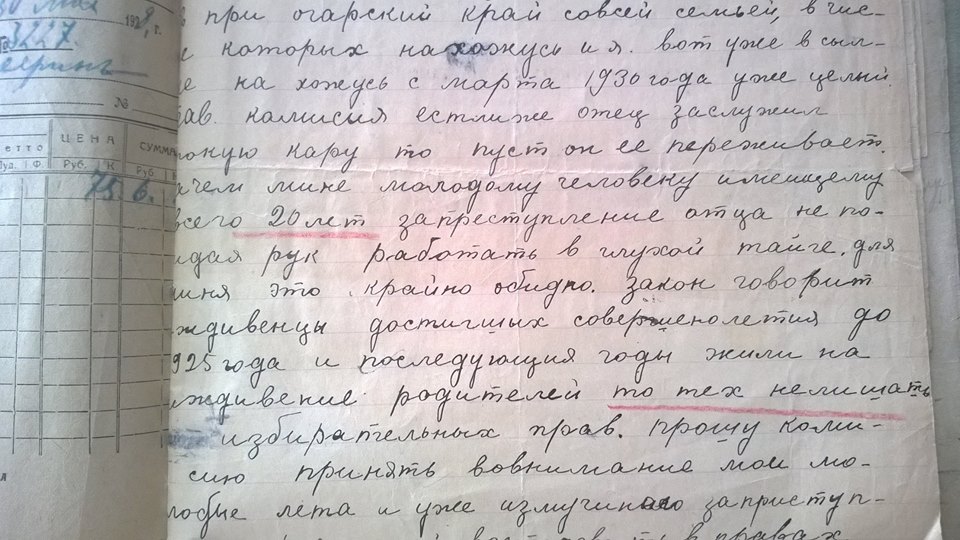 30 мая
1929 г.
3227
№
ЦЕНА
СУММА
етто
Пуд.
Ф.
Руб.
К
Руб
75.
6.
при огарский край совсей семьей, в чис-
которых нахожусь и я. вот уже в сыл-
на хожусь с марта 1930 года уже целый
ав. камисия естлиже отец заслужил
акую кару то пуст он ее переживает.
ачем мине молодому человеку имеющему
всего 20 лет запреступление отца не по-
идая рук работать в глухой тайге. для
миня это крайно обидно. закон говорит
ждивенцы достигших совершенолетия до
925 года и последующия годы жили на
иждивение родителей то тех нелишать
избирательных прав. прошу коми-
сию принять вовнимание мои мо-
лобые лета и уже измучинаго заприступ-
в правах